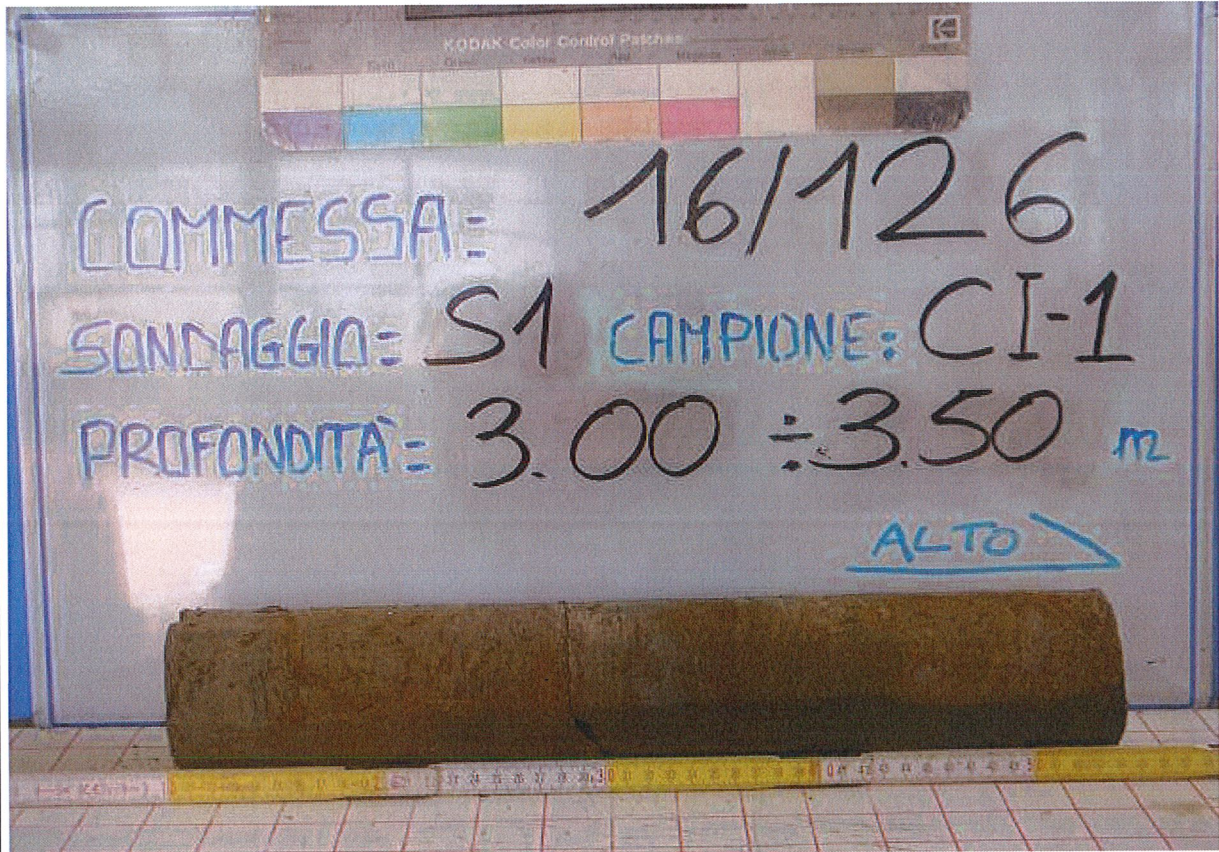 KODAK Color Control Patches
COMMESSA: 16/126
SONDAGGIO: S1 CAMPIONE: CI-1
PROFONDITÀ: 3.00 ÷ 3.50 m
ALTO